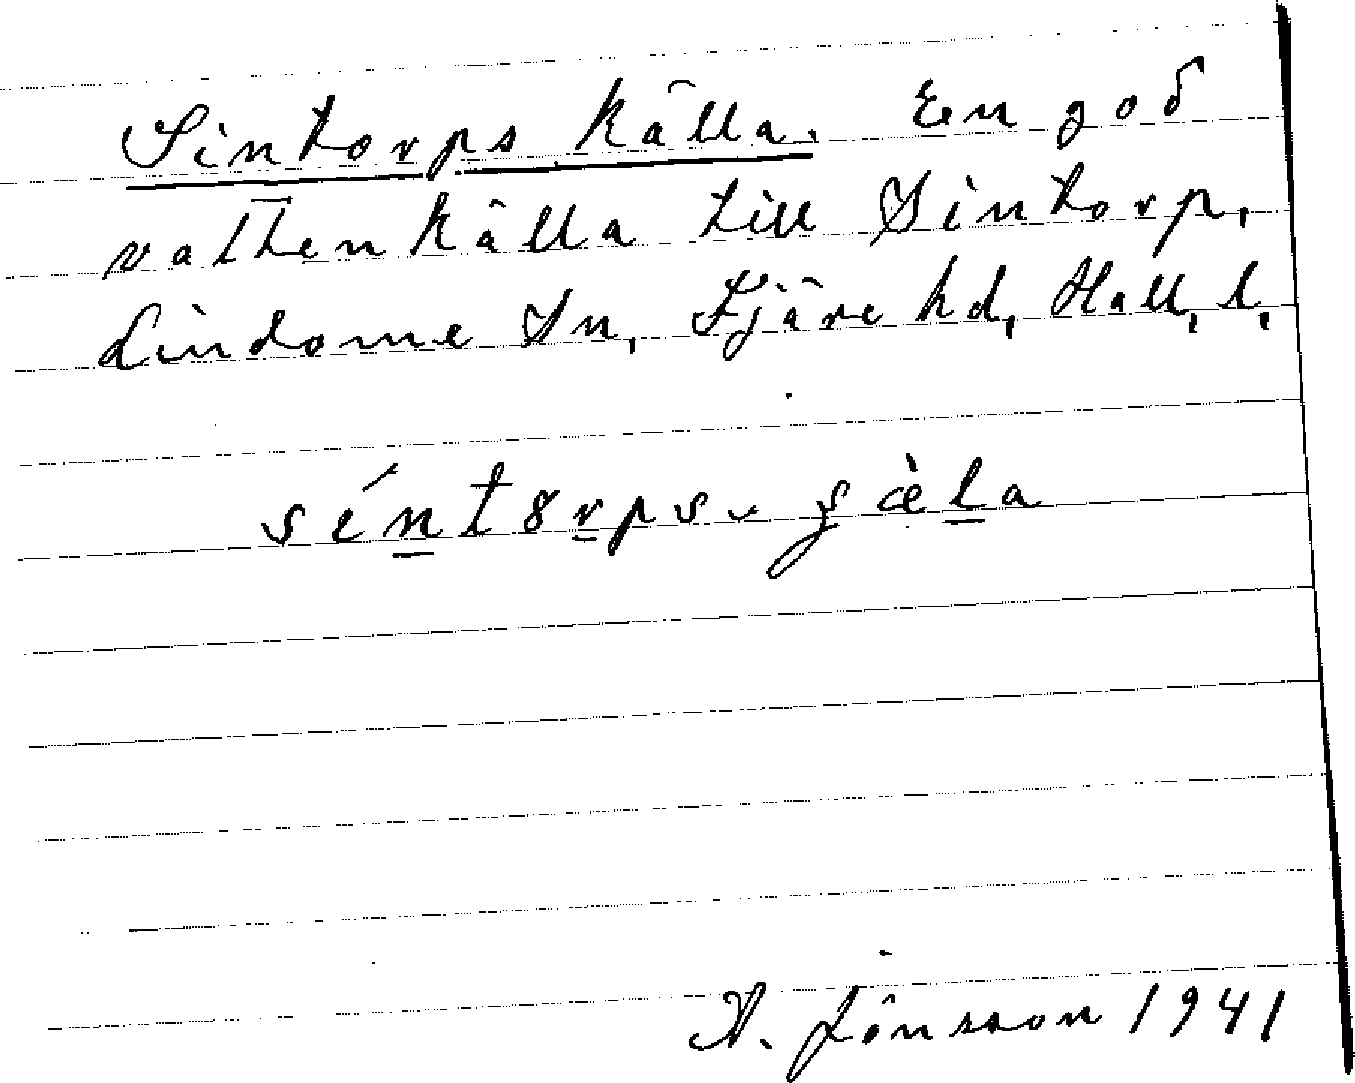 Sintorps källa. En god
vattenkälla till Sintorp,
Lindome Sn, Fjäre hd, Hall, l,
séntørps- çæ̀la
A. Jönsson 1941